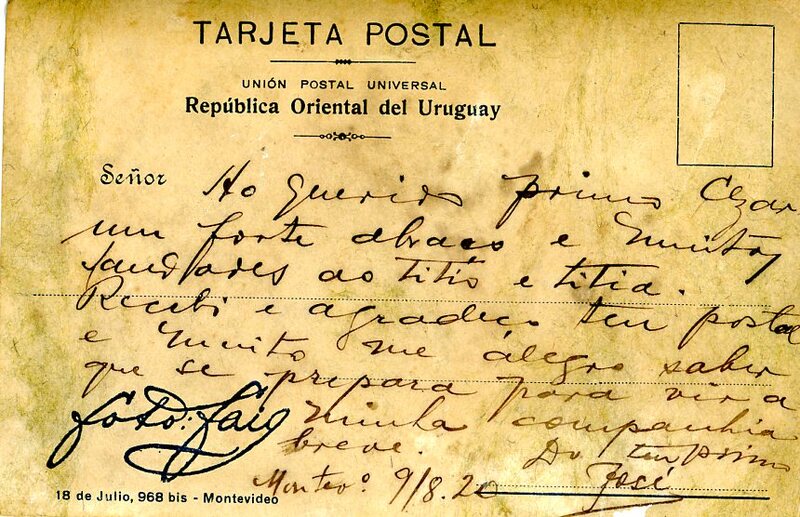 TARJETA POSTAL
UNIÓN POSTAL UNIVERSAL
República Oriental del Uruguay
Señor
Ao Querido primo Cezar
um forte abraço e muitas
saudades ao titio e titia.
Recebi e agradeço teu postal
e muito me álegro saber
que se prepara para vir a
minha companhia
breve.
Do teu primo
José
Montevo. 9/8.20
foto:
18 de Julio, 968 bis - Montevideo